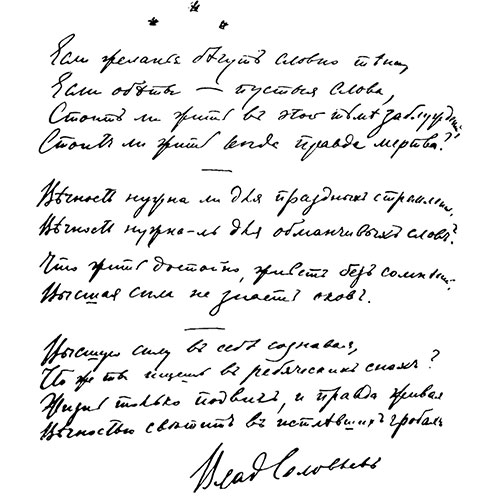 * * *
Если желанья бѣгутъ словно тѣни,
Если обѣты — пустыя слова,
Стоитъ ли жить въ этой тьмѣ заблужденій,
Стоитъ ли жить когда правда мертва?
Вѣчность нужна ли для праздныхъ стремленій,
Вѣчность нужна-ль для обманчивыхъ словъ?
Что жить достойно, живетъ безъ сомнѣній,
Высшая сила не знаетъ оковъ.
Высшую силу въ себѣ сознавая,
Что жъ ты ищешь въ ребяческихъ снахъ?
Жизнь только подвигъ, и правда живая
Вѣчностью свѣтитъ въ истлѣвшихъ гробахъ
Влад Соловьевъ